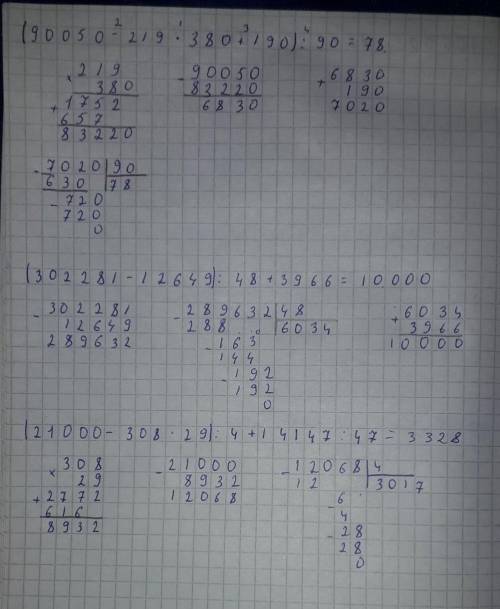 2 1 3 4
(90050 - 219 · 380 + 190) : 90 = 78
× 219
380
+ 1752
657
83220
- 90050
83220
6830
+ 6830
190
7020
- 7020 | 90
630 | 78
- 720
720
0
(302281 - 12649) : 48 + 3966 = 10000
- 302281
12649
289632
- 289632 | 48
288 | 6034
- 163
144
- 192
192
0
+ 6034
3966
10000
(21000 - 308 · 29) : 4 + 14147 : 47 = 3328
× 308
29
+ 2772
616
8932
- 21000
8932
12068
- 12068 | 4
12 | 3017
- 6
4
- 28
28
0